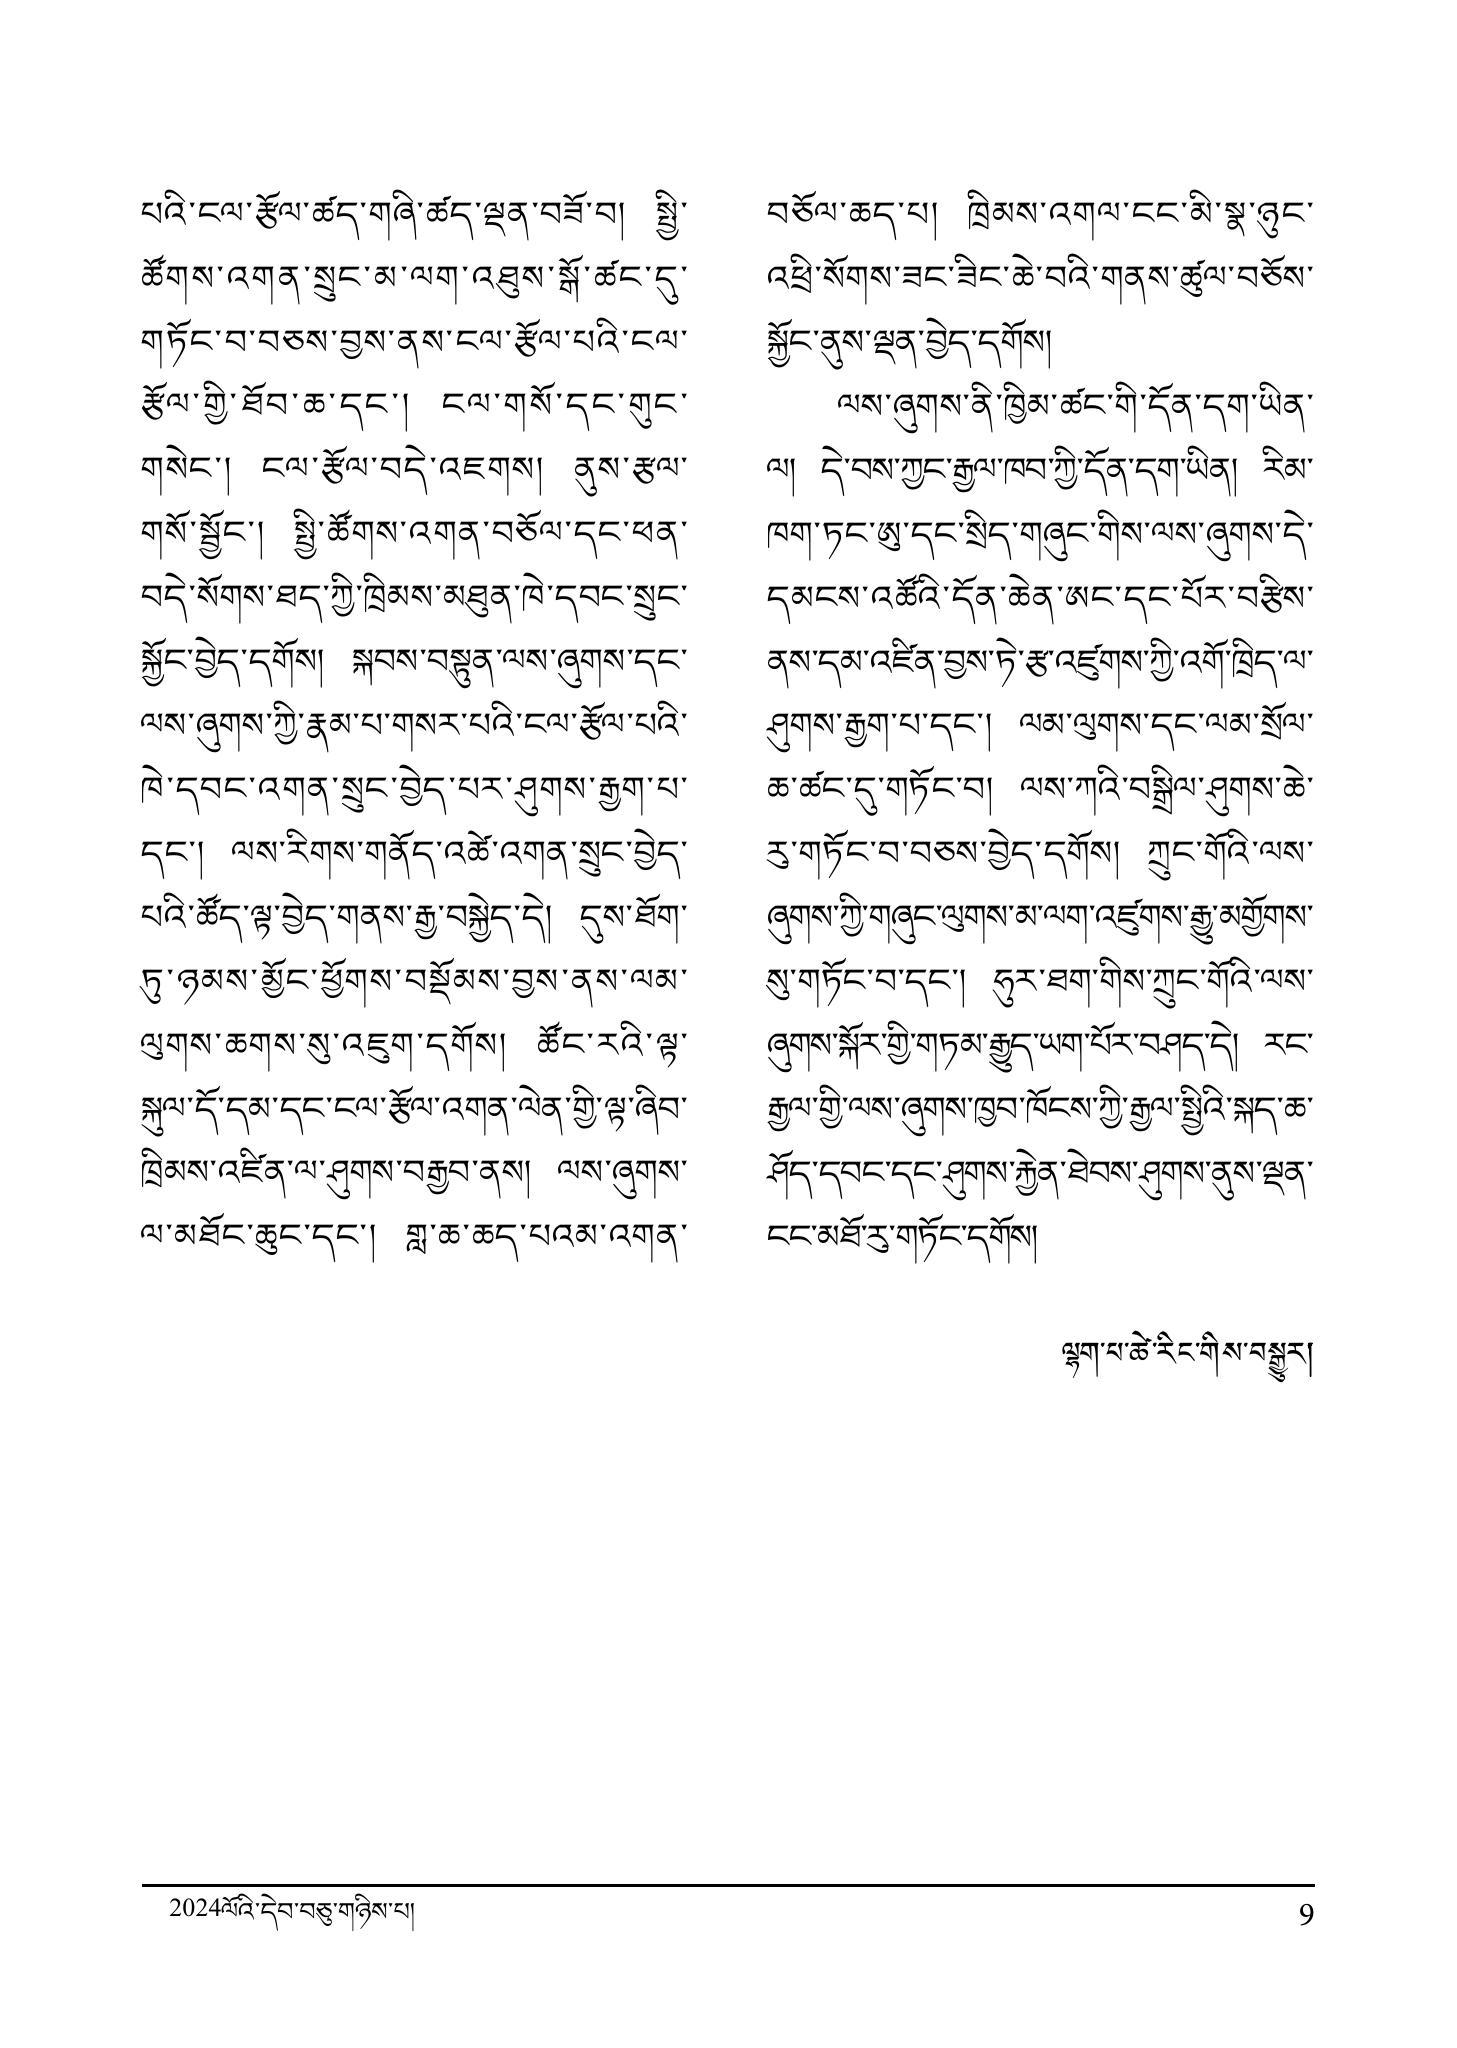 པའི་ངལ་རྩོལ་ཚད་གཞི་ཚད་ལྡན་བཟོ་བ། སྤྱི་
ཚོགས་འགན་སྲུང་མ་ལག་འཐུས་སྒོ་ཚང་དུ་
གཏོང་བ་བཅས་བྱས་ནས་ངལ་རྩོལ་པའི་ངལ་
རྩོལ་གྱི་ཐོབ་ཆ་དང་། ངལ་གསོ་དང་གུང་
གསེང་། ངལ་རྩོལ་བདེ་འཇགས། ནུས་རྩལ་
གསོ་སྦྱོང་། སྤྱི་ཚོགས་འགན་བཅོལ་དང་ཕན་
བདེ་སོགས་ཐད་ཀྱི་ཁྲིམས་མཐུན་ཁེ་དབང་སྲུང་
སྐྱོང་བྱེད་དགོས། སྐབས་བསྟུན་ལས་ཞུགས་དང་
ལས་ཞུགས་ཀྱི་རྣམ་པ་གསར་པའི་ངལ་རྩོལ་པའི་
ཁེ་དབང་འགན་སྲུང་བྱེད་པར་ཤུགས་རྒྱག་པ་
དང་། ལས་རིགས་གནོད་འཚེ་འགན་སྲུང་བྱེད་
པའི་ཚོད་ལྟ་བྱེད་གནས་རྒྱ་བསྐྱེད་དེ། དུས་ཐོག་
ཏུ་ཉམས་མྱོང་ཕྱོགས་བསྡོམས་བྱས་ནས་ལམ་
ལུགས་ཆགས་སུ་འཇུག་དགོས། ཚོང་རའི་ལྟ་
སྐུལ་དོ་དམ་དང་ངལ་རྩོལ་འགན་ལེན་གྱི་ལྟ་ཞིབ་
ཁྲིམས་འཛིན་ལ་ཤུགས་བརྒྱབ་ནས། ལས་ཞུགས་
ལ་མཐོང་ཆུང་དང་། གླ་ཆ་ཆད་པའམ་འགན་
བཅོལ་ཆད་པ། ཁྲིམས་འགལ་ངང་མི་སྣ་ཉུང་
འཕྲི་སོགས་ཟང་ཟིང་ཆེ་བའི་གནས་ཚུལ་བཅོས་
སྐྱོང་ནུས་ལྡན་བྱེད་དགོས།
ལས་ཞུགས་ནི་ཁྱིམ་ཚང་གི་དོན་དག་ཡིན་
ལ། དེ་བས་ཀྱང་རྒྱལ་ཁབ་ཀྱི་དོན་དག་ཡིན། རིམ་
ཁག་ཏང་ཨུ་དང་སྲིད་གཞུང་གིས་ལས་ཞུགས་དེ་
དམངས་འཚོའི་དོན་ཆེན་ཨང་དང་པོར་བརྩིས་
ནས་དམ་འཛིན་བྱས་ཏེ་རྩ་འཛུགས་ཀྱི་འགོ་ཁྲིད་ལ་
ཤུགས་རྒྱག་པ་དང་། ལམ་ལུགས་དང་ལམ་སྲོལ་
ཆ་ཚང་དུ་གཏོང་བ། ལས་ཀའི་བསྒྲིལ་ཤུགས་ཆེ་
རུ་གཏོང་བ་བཅས་བྱེད་དགོས། ཀྲུང་གོའི་ལས་
ཞུགས་ཀྱི་གཞུང་ལུགས་མ་ལག་འཛུགས་རྒྱུ་མགྱོགས་
སུ་གཏོང་བ་དང་། ཧུར་ཐག་གིས་ཀྲུང་གོའི་ལས་
ཞུགས་སྐོར་གྱི་གཏམ་རྒྱུད་ཡག་པོར་བཤད་དེ། རང་
རྒྱལ་གྱི་ལས་ཞུགས་ཁྱབ་ཁོངས་ཀྱི་རྒྱལ་སྤྱིའི་སྐད་ཆ་
ཤོད་དབང་དང་ཤུགས་རྐྱེན་ཐེབས་ཤུགས་ནུས་ལྡན་
ངང་མཐོ་རུ་གཏོང་དགོས།
ལྷག་པ་ཚེ་རིང་གིས་བསྒྱུར།
2024ལོའི་དེབ་བཅུ་གཉིས་པ། 9